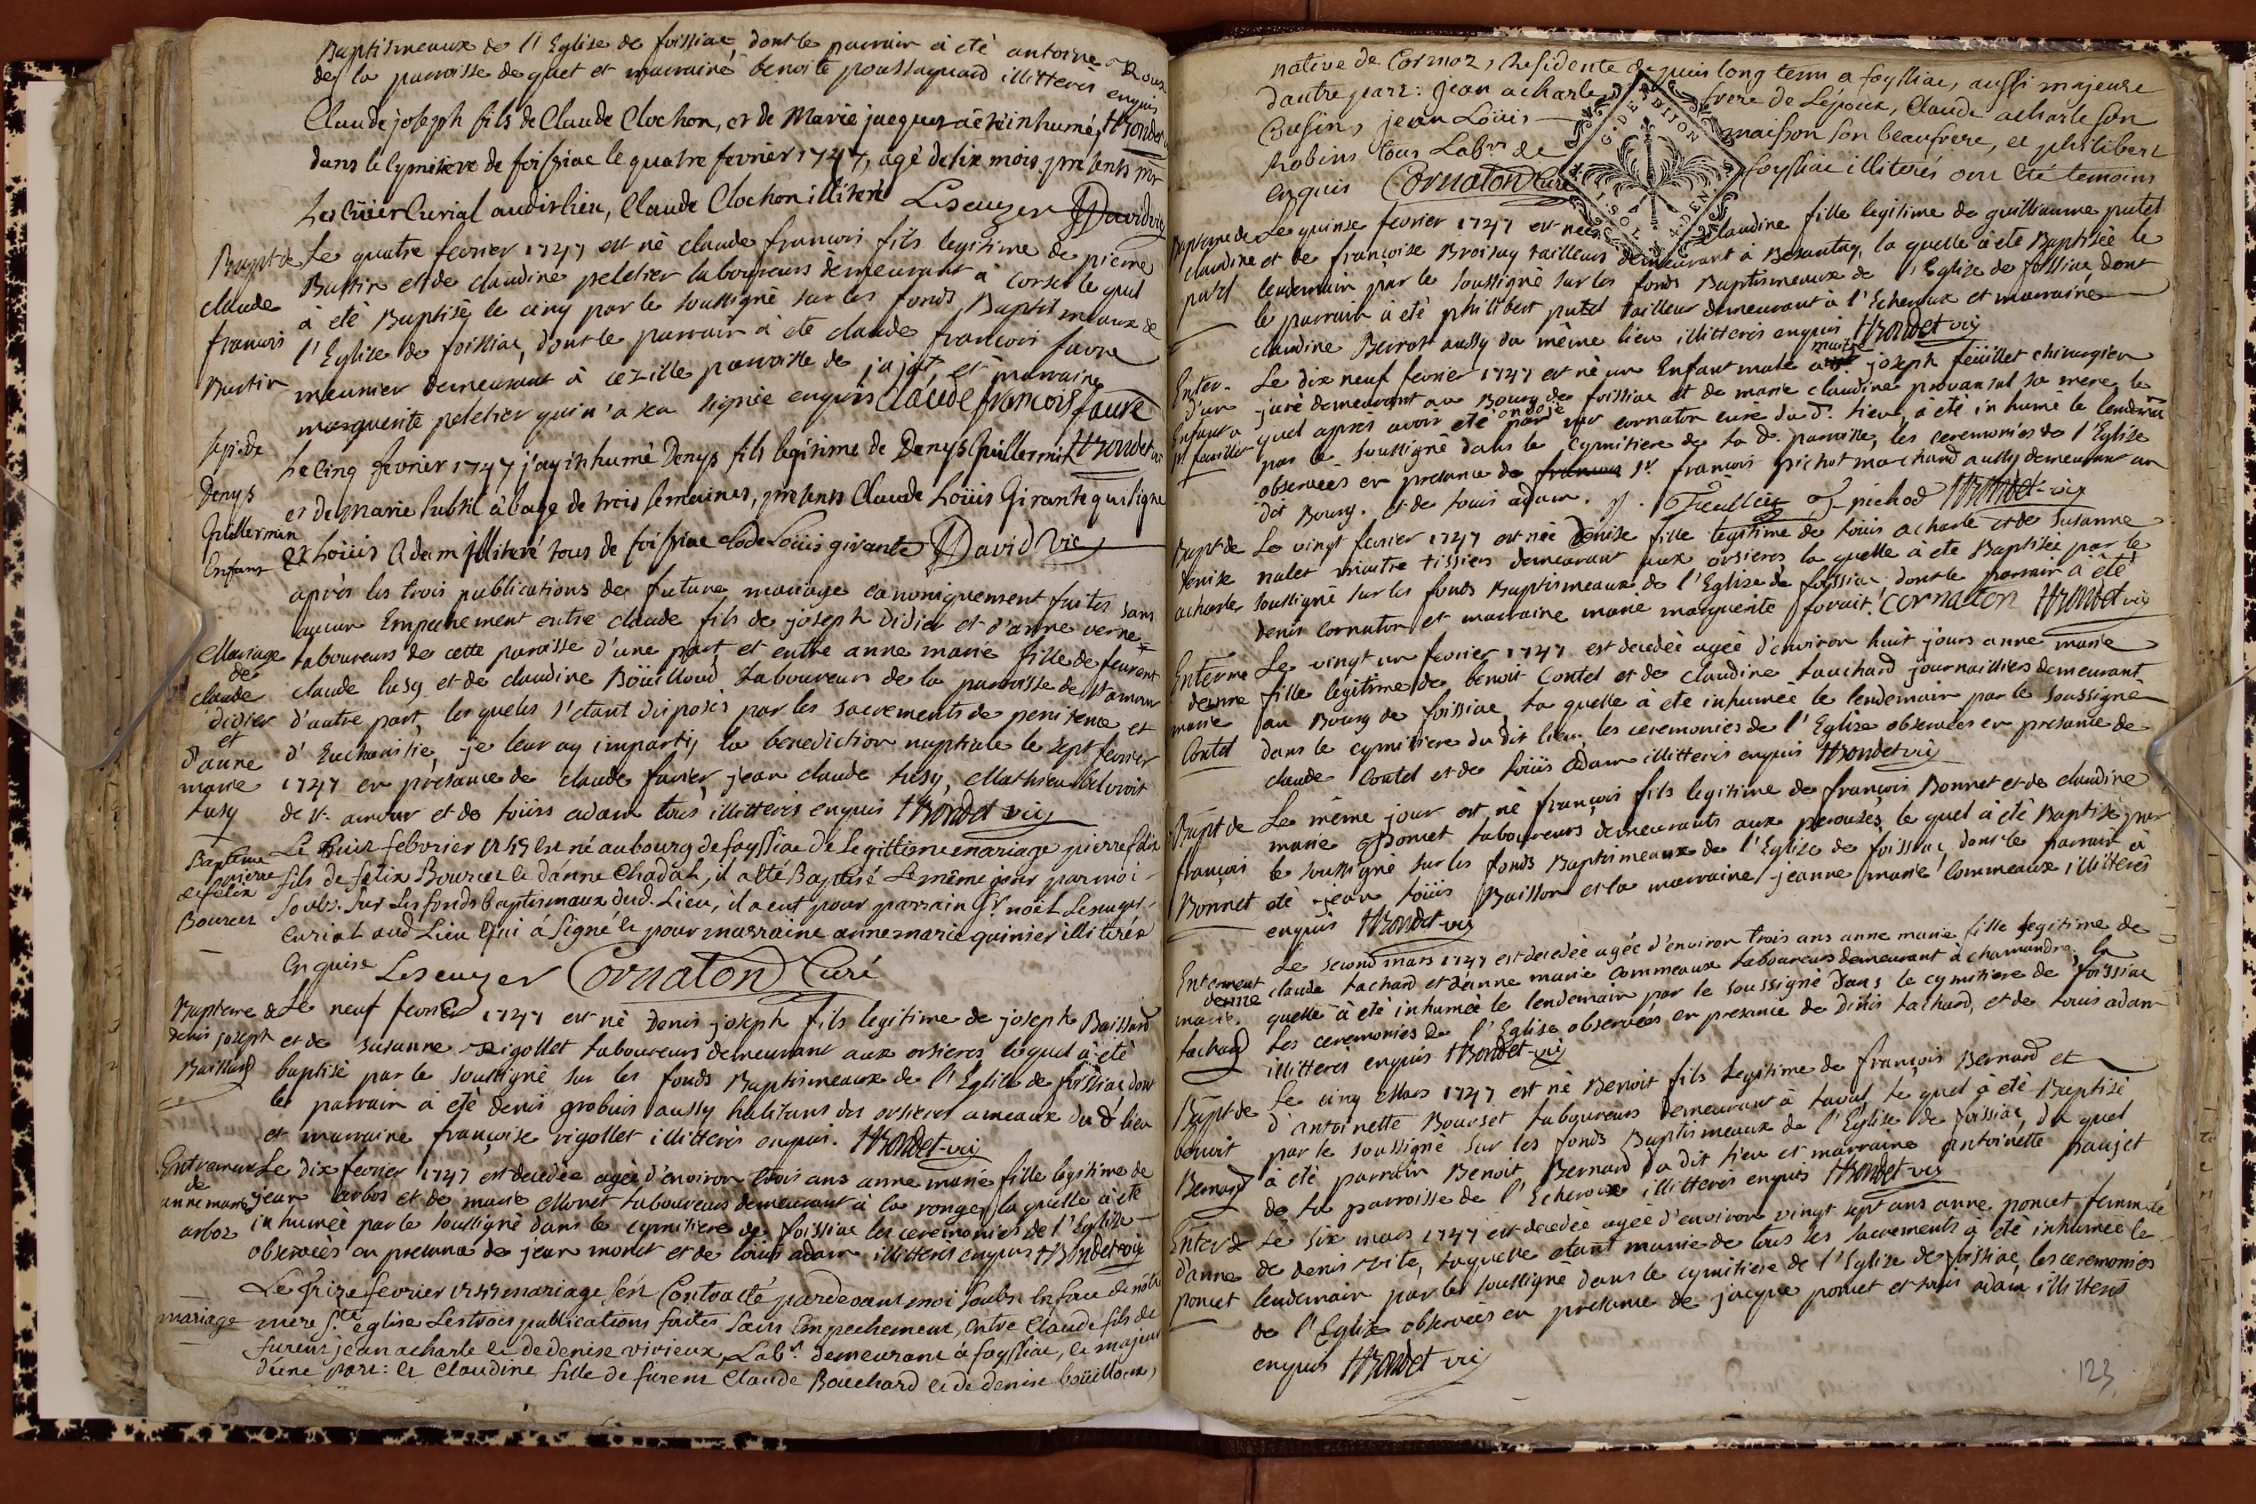 Baptismeaux de l'Eglise de foissiac, dont le parrain à été antoine Roux
de la parroisse de guet et marraine benoite poussuquard illitterés enquis
Claude joseph fils de Claude Clochon, et de Marie jacquet a été inhumé, HRondet vic
dans le Cymitiere de foissiac le quatre fevrier 1747, agé de six mois presents mr
Lescuier Curial audit lieu, Claude Clochon illiteré Lescuyer JDavid vic
Bapt de
claude
francois
Buttin
Le quatre fevrier 1747 est né claude francois fils legitime de pierre
Buttin et de claudine peletier laboureurs demeurant à corset le quel
à été Baptisé le cinq par le soussigné sur les fonds Baptismeaux de
l'Eglise de foissiac, dont le parrain à eté claude francois favre
meunier demeurant à cezille parroisse de jajat, et marraine
marguerite peletier qui n'a sçu signée enquis Claude francois faure
HRondet vic
sep. de
Denys
Guillermin
Enfant
Le Cinq fevrier 1747 j'ay inhumé Denys fils legitime de Denys Guillermin
et de Marie subtil à l'age de trois semaines, presents Claude Loüis Girante qui signe
et Loüis Adam illiteré tous de foissiac Clode Loüis girante JDavid Vic
Mariage
de
claude
didier
et
d'anne
marie
lusy
après les trois publications de future mariage canoniquement faites sans
aucun Empechement entre claude fils de joseph didier et d'anne verne
laboureurs de cette paroisse d'une part, et entre anne marie fille de feurent
claude lusy et de claudine Boüilloud Laboureurs de la parroisse de st amour
d'autre part, lesquels s'étant disposés par les sacrements de penitence et
d'Eucharistie, je leur ay imparty la benediction nuptiale le sept fevrier
1747 en présance de claude favier, jean claude lusy, Mathieu
de st. amour et de loüis adam tous illitterés enquis HRondet vic
Baptême
pierre
felix
Bourcet
Le huit febvrier 1747 est né au bourg de foyssiac de Legittime mariage pierre felix
fils de felix Bourcet et d'anne Chadal, il a été Baptisé Le même jour par moi
soubs. sur Les fonds baptismaux dud. Lieu, il a eut pour parrain Sr. noël Lescuyer
Curial aud Lieu qui à signé et pour marraine annemarie quinier illiterée
enquise Lescuyer Cornaton Curé
Bapteme de
denis joseph
Baissard
Le neuf fevrier 1747 est né Denis joseph fils legitime de joseph Baissard
et de susanne Rigollet laboureurs demeurant aux orsieres lequel à été
baptisé par le soussigné sur les fonds Baptismeaux de l'Eglise de foissiac, dont
le parrain à été denis grobuis aussy habitans des orsieres ameaux du d lieu
et marraine françoise rigollet illitterés enquis. HRondet vic
Enterement
de
anne marie
arboz
Le dix fevrier 1747 est decedée agée d'environ trois ans anne marie fille legitime de
jean arbos et de marie Monet laboureurs demeurant à la ronger laquelle à été
inhumée par le soussigné dans le cymitiere de foissiac les ceremonies de l'Eglise
observées en presance de jean monet et de loüis adam illitterés enquis HRondet vic
mariage
Le treize fevrier 1747 mariage s'est Contracté pardevant moi soubs. en face de nôtre
mere Ste. eglise Les trois publications faites sans Empechement, entre Claude fils de
furent jean acharle et de denise vivieux, Labrs. demeurant à foyssiac, et majeur
d'une part: et Claudine fille de furent Claude Bouchard et de denise boüilloux,
native de Cormoz, Residente depuis long tems a foyssiac, aussi majeure
d'autre part: jean acharle frere de L'époux, Claude acharle son
Cusin, jean Loüis maisson son beaufrere, et philibert
Robins tous Labrs de foyssiac illiterés ont été temoins
enquis Cornaton Curé
G. DE DIJON
Bapteme de
claudine
putet
Le quinse fevrier 1747 est née Claudine fille legitime de guillaume putet
et de françoise Broisay tailleurs demeurant à Besentay, la quelle à été Baptisée le
lendemain par le soussigné sur les fonds Baptismeaux de l'Eglise de foissiac dont
le parrain à été philibert putet tailleur demeurant à l'Echeroux et marraine
claudine Berrot aussy du même lieu illitterés enquis HRondet vic
Enter.
d'un
Enfant a
sr. feuillet
Le dix neuf fevrier 1747 est né un Enfant male a maitre joseph feüillet chirurgien
juré demeurant au Bourg de foissiac et de marie claudine provansal sa mere, le
quel après avoir été ondoïé par mr cornaton curé du d. lieu, à été inhumé le lendemain
par le soussigné dans le Cymitiere de la d. parroisse, les ceremonies de l'Eglise
observees en presance de francois sr. francois pichot marchand aussy demeurant au
dit Bourg. et de louis adam. Feuillet F pichod HRondet vic
Bapt de
denise
acharle
Le vingt fevrier 1747 est née Denise fille legitime de loüis acharle et de Susanne
nalet maitre tissiers demeurant aux orsieres la quelle à été Baptisée par le
soussigné sur les fonds Baptismeaux de l'Eglise de foissiac dont le parrain à été
denis Cornaton et marraine marie marguerite forait. Cornaton HRondet vic
Enterre
d'anne
marie
Contet
Le vingt un fevrier 1747 est decedée agée d'environ huit jours anne marie
fille legitime de benoit Contet et de claudine tauchard journailliers demeurant
au Bourg de foissiac la quelle à été inhumée le lendemain par le soussigné
dans le cymitiere du dit lieu les ceremonies de l'Eglise observées en presance de
claude Contet et de loüis Adam illitterés enquis HRondet vic
Bapt de
françois
Bonnet
Le même jour est né françois fils legitime de françois Bonnet et de claudine
marie Poncet laboureurs demeurants aux perouses, le quel à été Baptisé par
le soussigné sur les fonds Baptismeaux de l'Eglise de foissiac, dont le parrain à
eté jean loüis Baisson et la marraine jeanne marie Commeaux illitterés
enquis HRondet vic
Enterment
d'anne
marie
tachard
Le second mars 1747 est decedée agée d'environ trois ans anne marie fille legitime de
claude tachard et d'anne marie Commeaux laboureurs demeurant à chamandre la
quelle à été inhumée le lendemain par le soussigné dans le cymitiere de foissiac
les ceremonies de l'Eglise observées en presance de dinis tachard, et de louis adam
illitterés enquis HRondet vic
Bapt de
benoit
Bernard
Le cinq Mars 1747 est né Benoit fils legitime de françois Bernard et
d'antoinette Bourset laboureurs demeurant à taval, le quel à été Baptisé
par le soussigné sur les fonds Baptismeaux de l'Eglise de foissiac, du quel
à été parrain Benoit Bernard du dit lieu et marraine antoinette paujet
de la parroisse de l'Echeroux illitterés enquis HRondet vic
Enter de
d'anne
poncet
Le six mars 1747 est decedée agée d'environ vingt sept ans anne poncet femme
de denis vite, laquelle etant munie de tous les sacrements à été inhumée le
lendemain par le soussigné dans le cymitiere de l'Eglise de foissiac, les ceremonies
de l'Eglise observées en presance de jacque poncet et louis adam illitterés
enquis HRondet vic
123